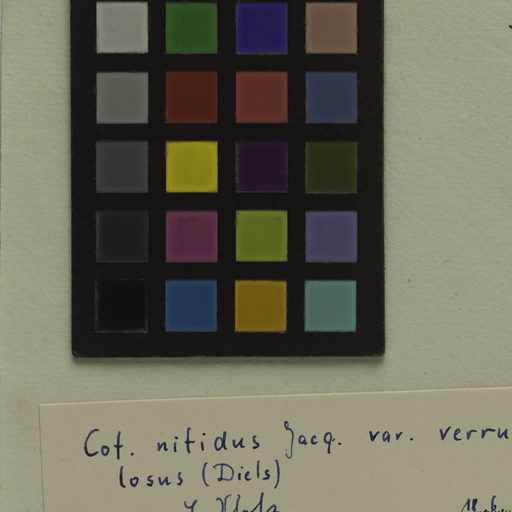 Cot. nitidus Jacq. var. verru
losus (Diels)